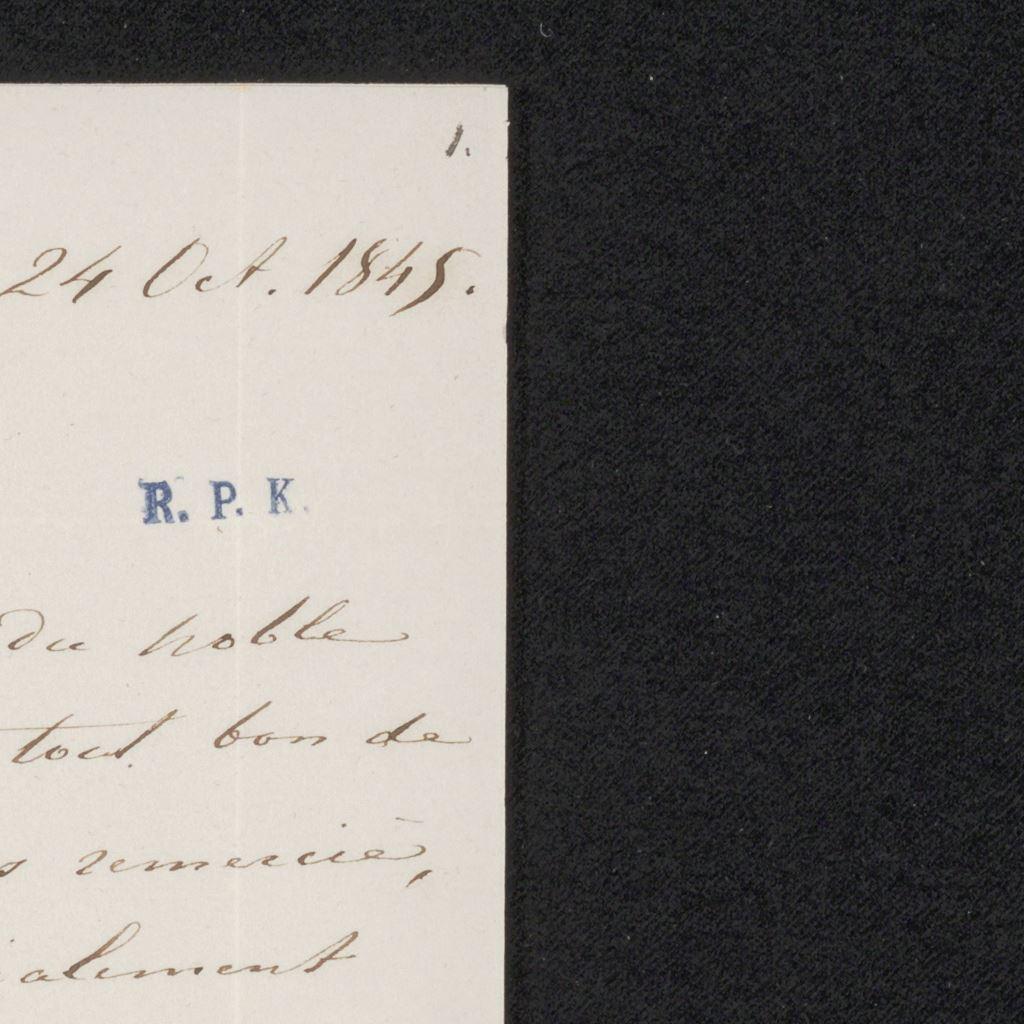 1.
24 Oct. 1845.
R. P. K.
du noble
tout bon de
s remercie,
ialement